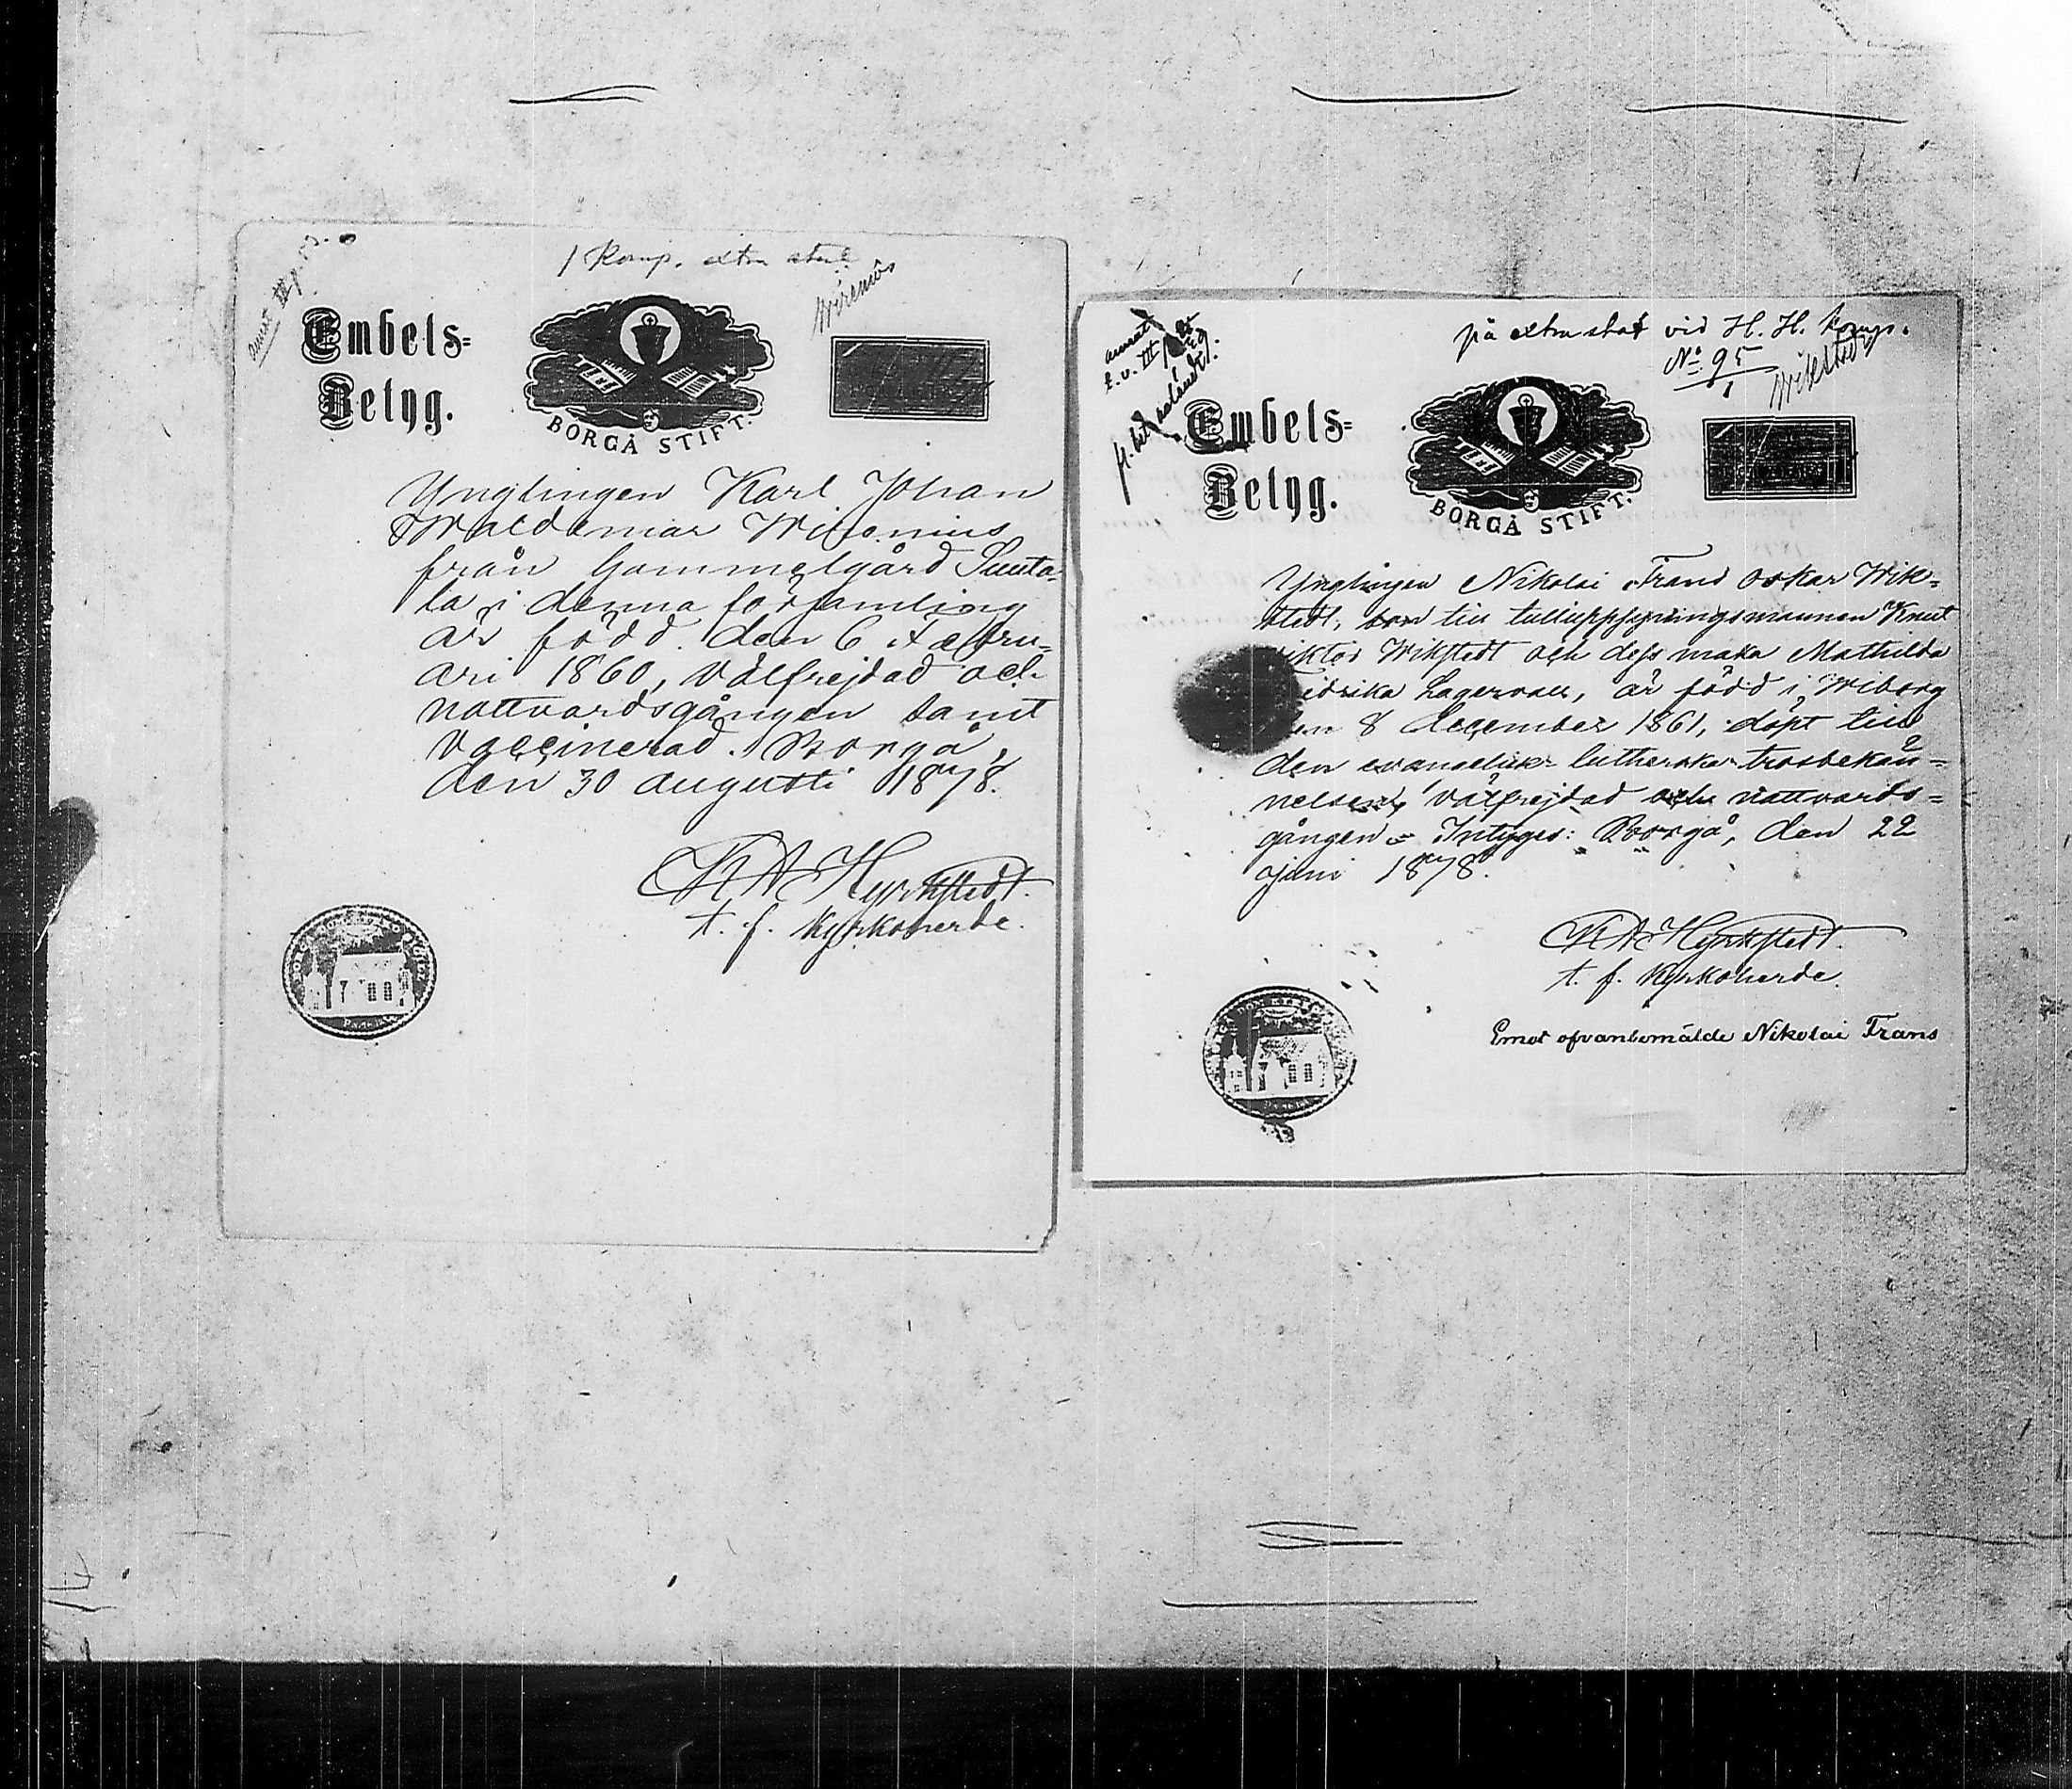 1 Komp. extra stat
Wirenius
Embets=
Betyg.
BORGÅ STIFT.
Ynglingen Karl Johan
Waldemar Wirenius
från Gammelgård Suuta-
la i denna församling
är född den 6 Febru=
ari 1860, välfrejdad och
nattvardsgången samt
vaccinerad. Borgå,
den 30 augusti 1878.
K A Hyrkstedt.
t. f. Kyrkoherde.
på extra stat vid H. H. Komp.
No 95
1
Wikstedt
Embets=
Betyg.
BORGÅ STIFT.
Ynglingen Nikolai Frans Oskar Wik=
stedt, son till tulluppsyningsmannen Knut
Wikstedt och dess maka Mathilda
Lagervall, är född i Wiborg
8 december 1861, döpt till
den evangelisk-lutherska trosbekän=
nelsen, välfrejdad och nattvards=
gången. Intygas: Borgå, den 22
juni 1878.
K A Hyrkstedt.
t. f. Kyrkoherde.
Emot ofvanbemälde Nikolai Frans